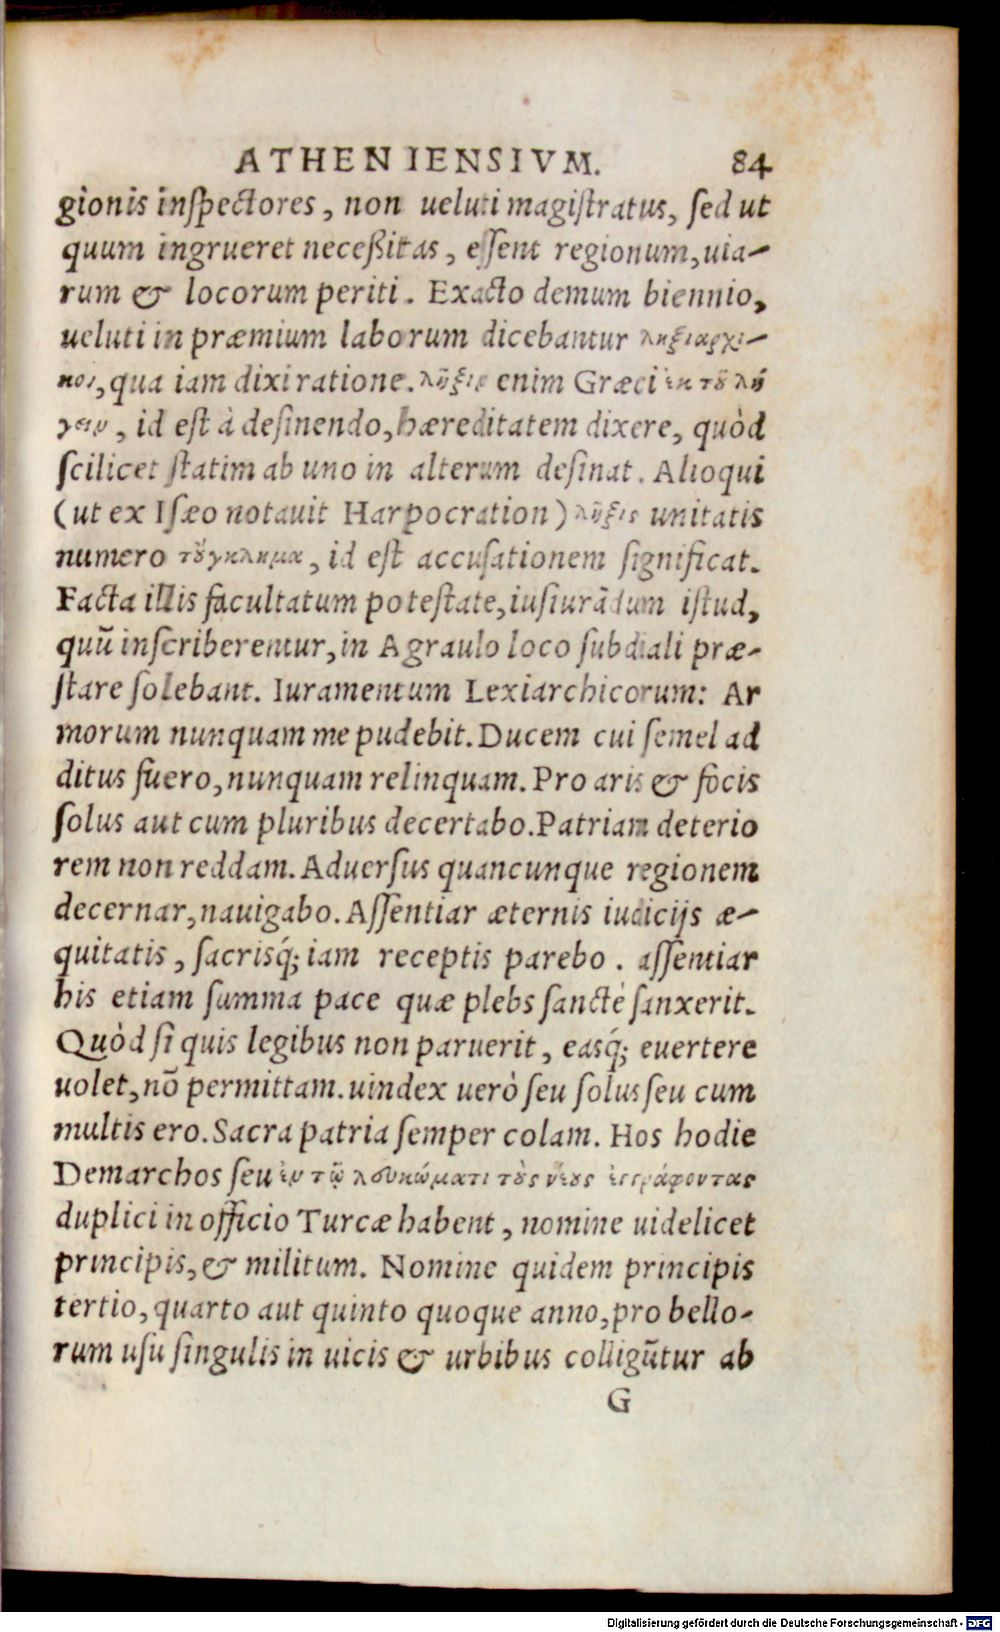 ATHENIENSIVM. 84
gionis inſpectores, non ueluti magiſtratus, ſed ut
quum ingrueret neceßitas, eſſent regionum, uia-
rum & locorum periti. Exacto demum biennio,
ueluti in præmium laborum dicebantur ληξιαρχι-
κοι, qua iam dixi ratione. λῆξιν enim Græci ἐκ τοῦ λή
γειν, id eſt à deſinendo, hæreditatem dixere, quòd
ſcilicet ſtatim ab uno in alterum deſinat. Alioqui
(ut ex Iſæo notauit Harpocration) λῆξις unitatis
numero τοὔγκλημα, id eſt accuſationem ſignificat.
Facta illis facultatum poteſtate, iuſiurãdum iſtud,
quũ inſcriberentur, in Agraulo loco ſubdiali præ-
ſtare ſolebant. Iuramentum Lexiarchicorum: Ar
morum nunquam me pudebit. Ducem cui ſemel ad
ditus fuero, nunquam relinquam. Pro aris & focis
ſolus aut cum pluribus decertabo. Patriam deterio
rem non reddam. Aduerſus quancunque regionem
decernar, nauigabo. Aſſentiar æternis iudicijs æ-
quitatis, ſacrisq́; iam receptis parebo. aſſentiar
his etiam ſumma pace quæ plebs ſanctè ſanxerit.
Quòd ſi quis legibus non paruerit, easq́; euertere
uolet, nõ permittam. uindex uerò ſeu ſolus ſeu cum
multis ero. Sacra patria ſemper colam. Hos hodie
Demarchos ſeu ἐν τῷ λευκώματι τοὺς νέους ἐγγράφοντας
duplici in officio Turcæ habent, nomine uidelicet
principis, & militum. Nomine quidem principis
tertio, quarto aut quinto quoque anno, pro bello-
rum uſu ſingulis in uicis & urbibus colligũtur ab
G
Digitalisierung gefördert durch die Deutsche Forschungsgemeinschaft - DFG